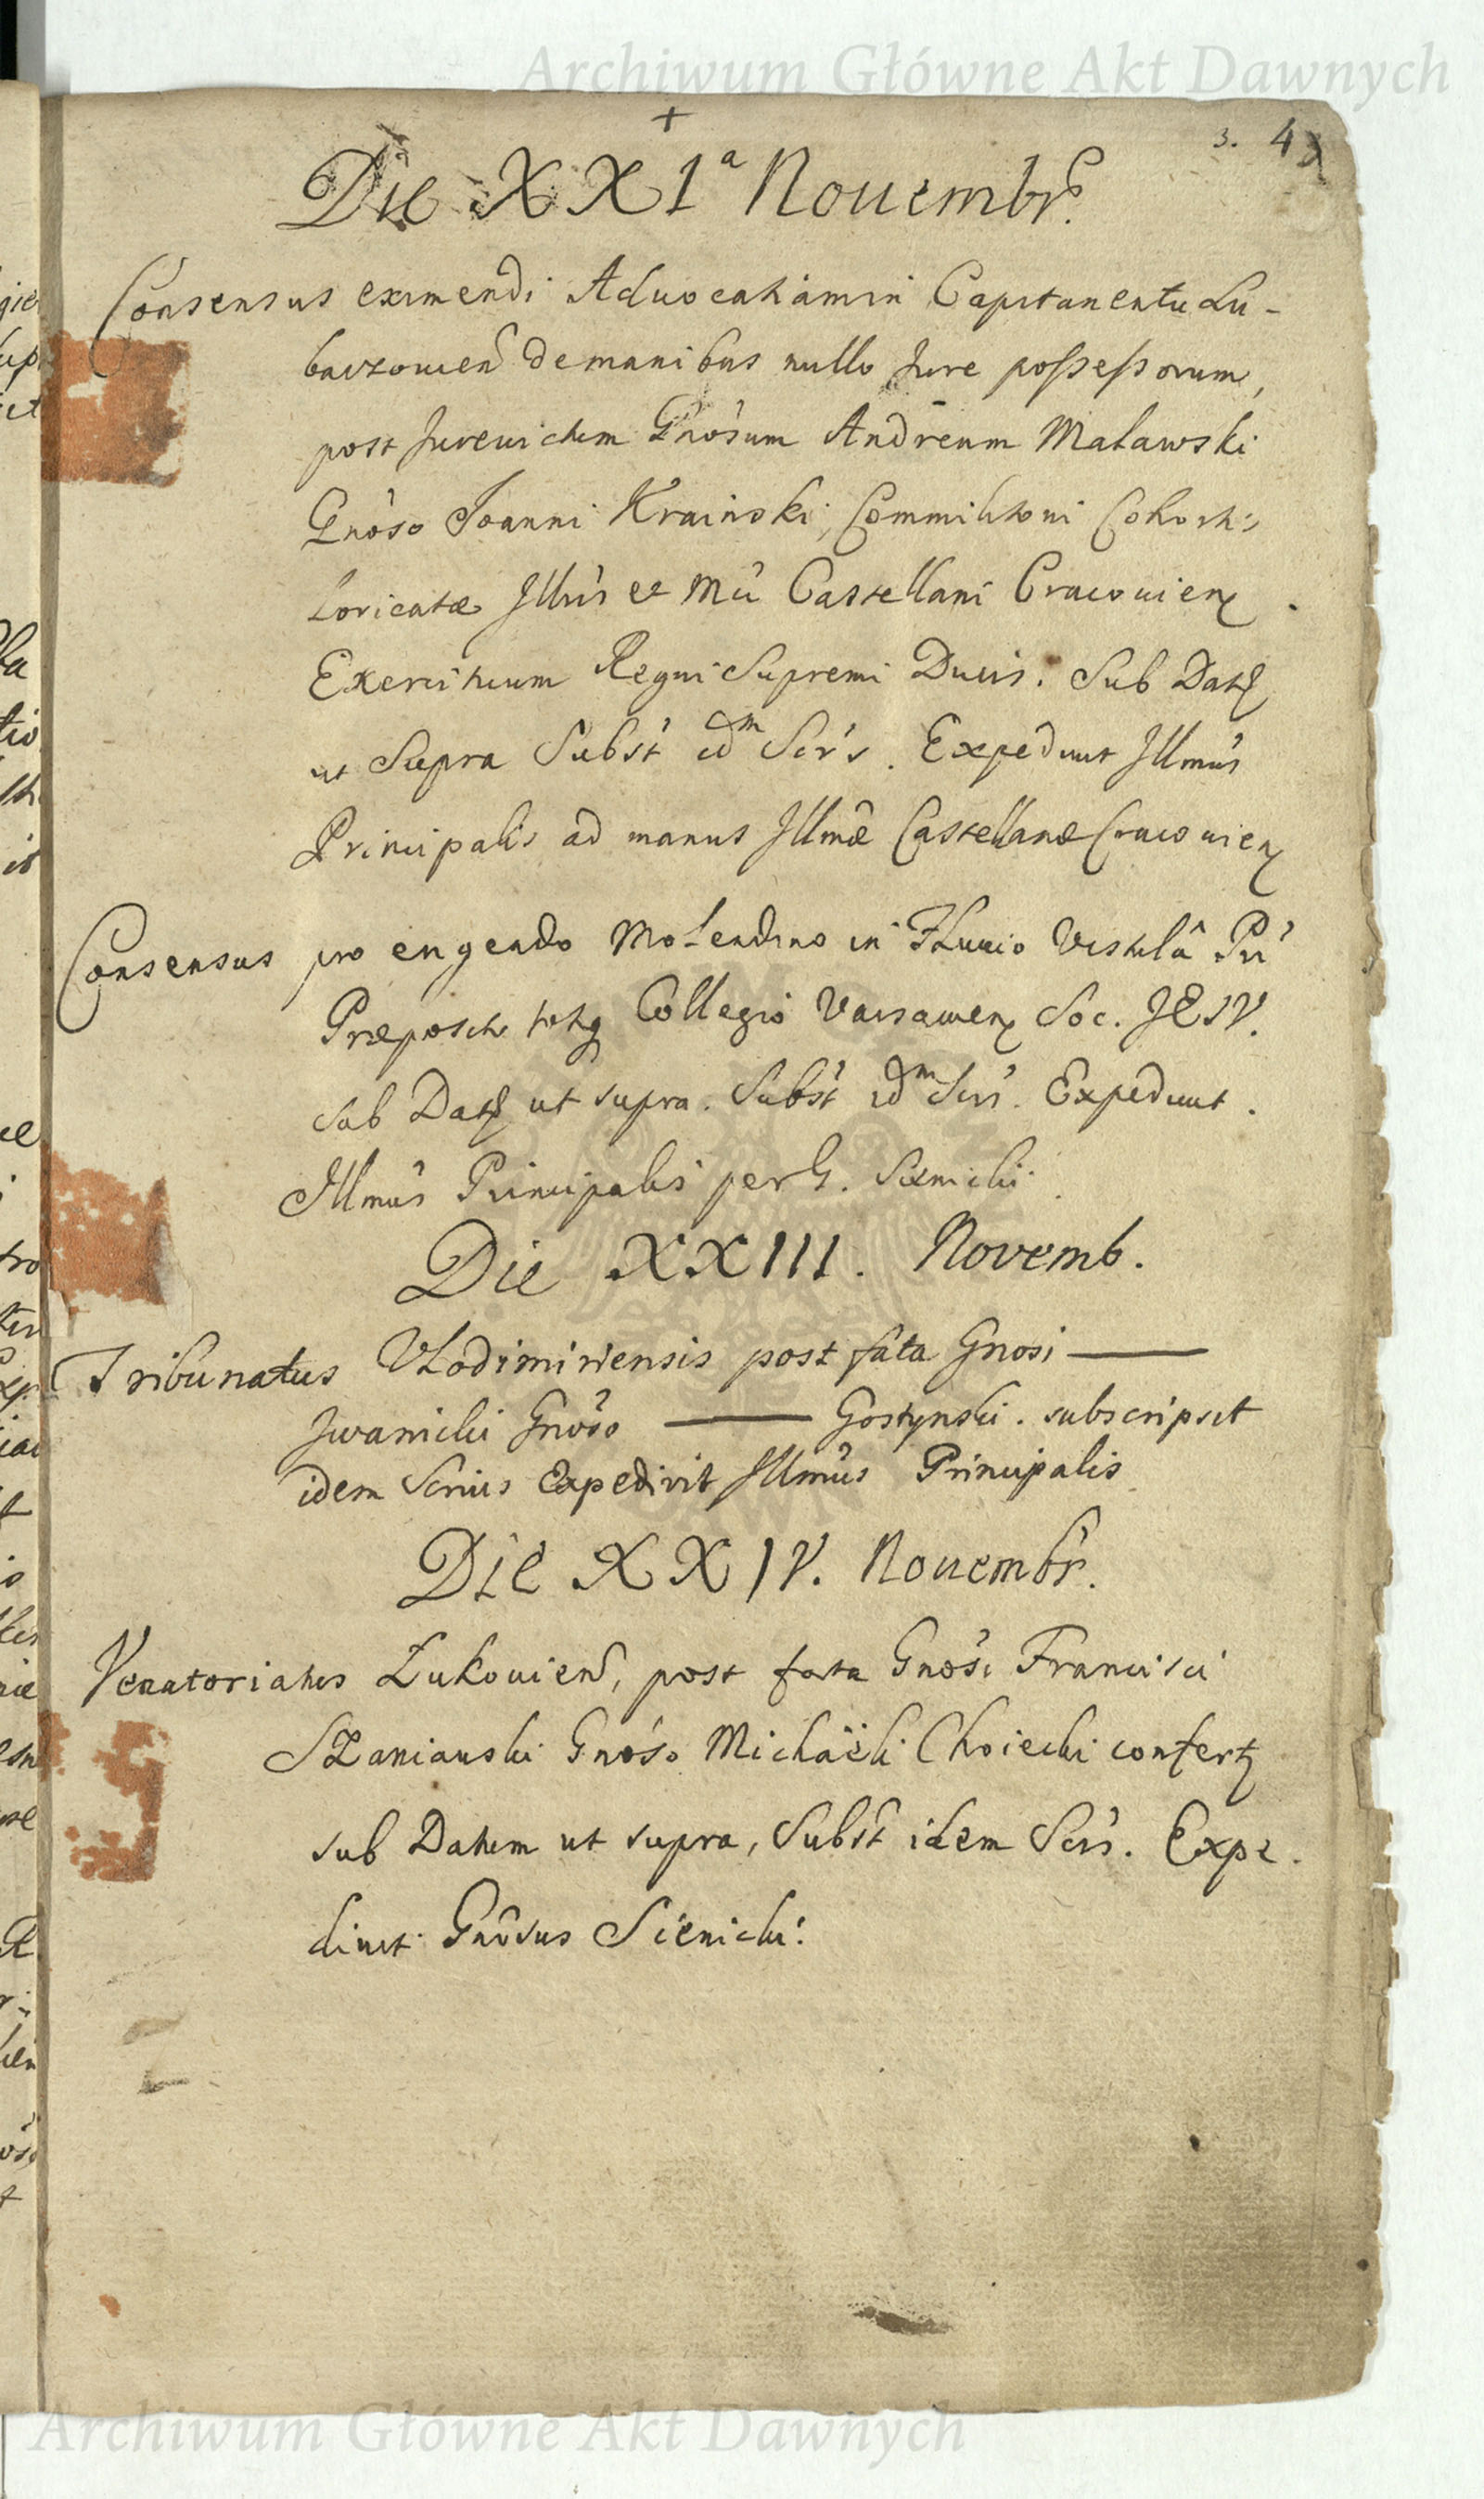 Archiwum Główne Akt Dawnych
3. 4
Die XXIª Nouembr.
Consensus eximendi Aduocatiam in Capitaneatu Lu-
baczouien de manibus nullo Jure possessorum,
post Gnosum Andream Malawski
Gnoso Joanni Krainski, Commilitoni Cohortis
Loricatæ Illris et Mci Castellani Cracouien
Exercituum Regni Supremi Ducis. Sub Dat
ut Supra Subst idm Scrs. Expediuit Illmus
Principalis ad manus Illmæ Castellanæ Cracouien
Consensus pro erigendo Molendino in Fluuio Vistulâ
Præposito totiq Collegio Varsauien Soc. JESV.
sub Dat ut supra. Subst idm Scrs. Expediuit.
Illmus Principalis per G. Sienicki.
Die XXIII. Novemb.
Tribunatus Vlodimiriensis post fata Gnosi ———
Jwanicki Gnoso ——— Gostynski. subscripsit
idem Scrius Expedivit Illmus Principalis
Die XXIV. Nouembr.
Venatoriatus Łukouien, post fata Gnosi Francisci
Szaniauski Gnoso Michaëli Choiecki confert
sub Datum ut supra, Subst idem Scrs. Expe.
diuit Gnosus Sienicki.
Archiwum Główne Akt Dawnych